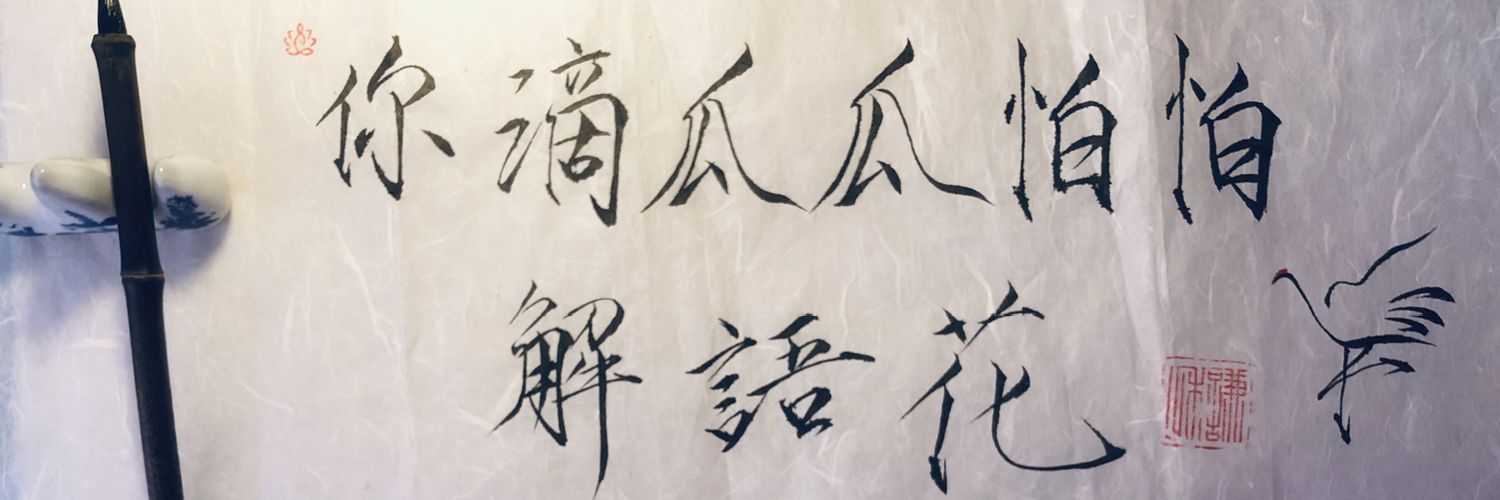 你滴瓜瓜怕怕
解語花